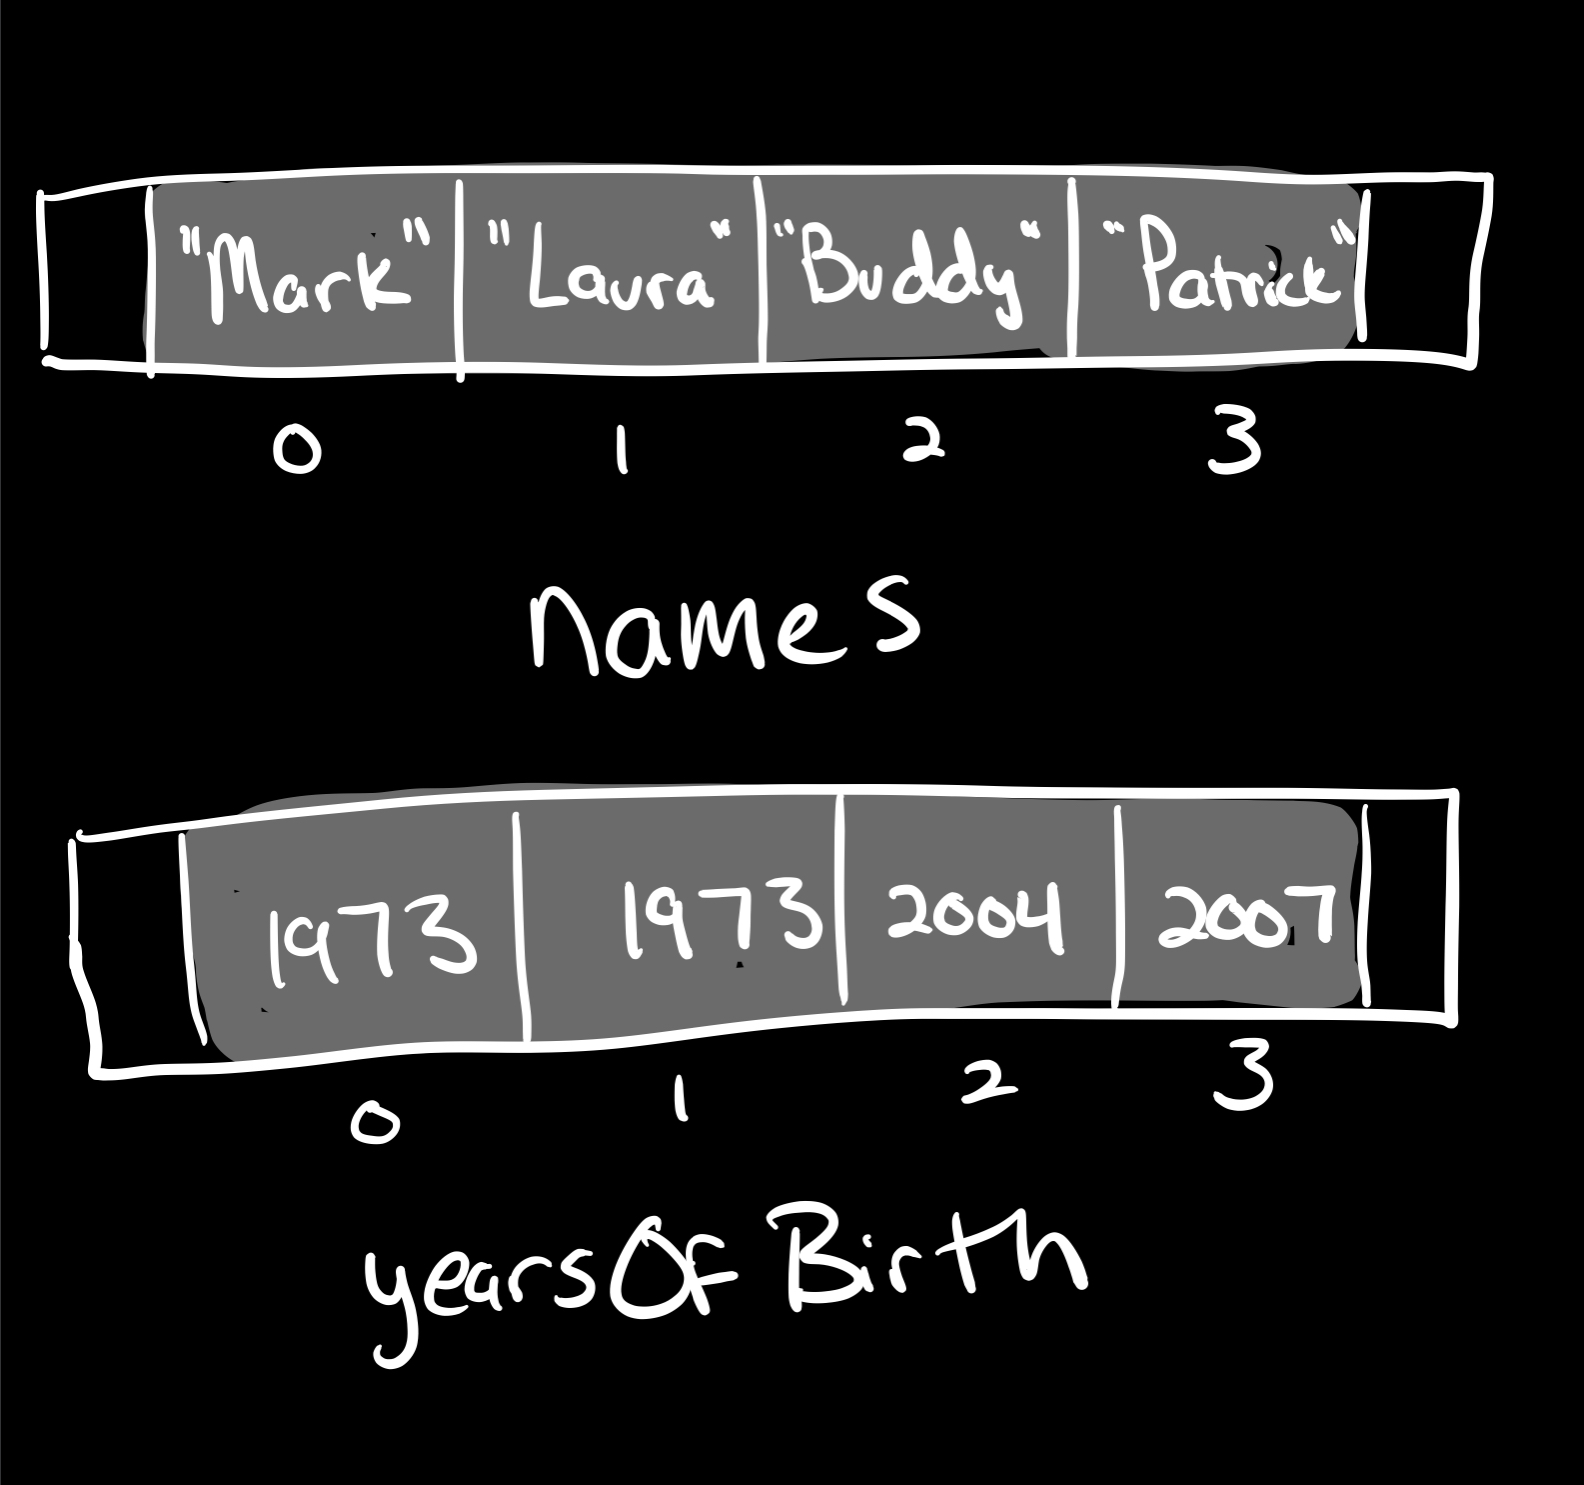 "Mark" "Laura" "Buddy" "Patrick"
0 1 2 3
names
1973 1973 2004 2007
0 1 2 3
yearsOfBirth